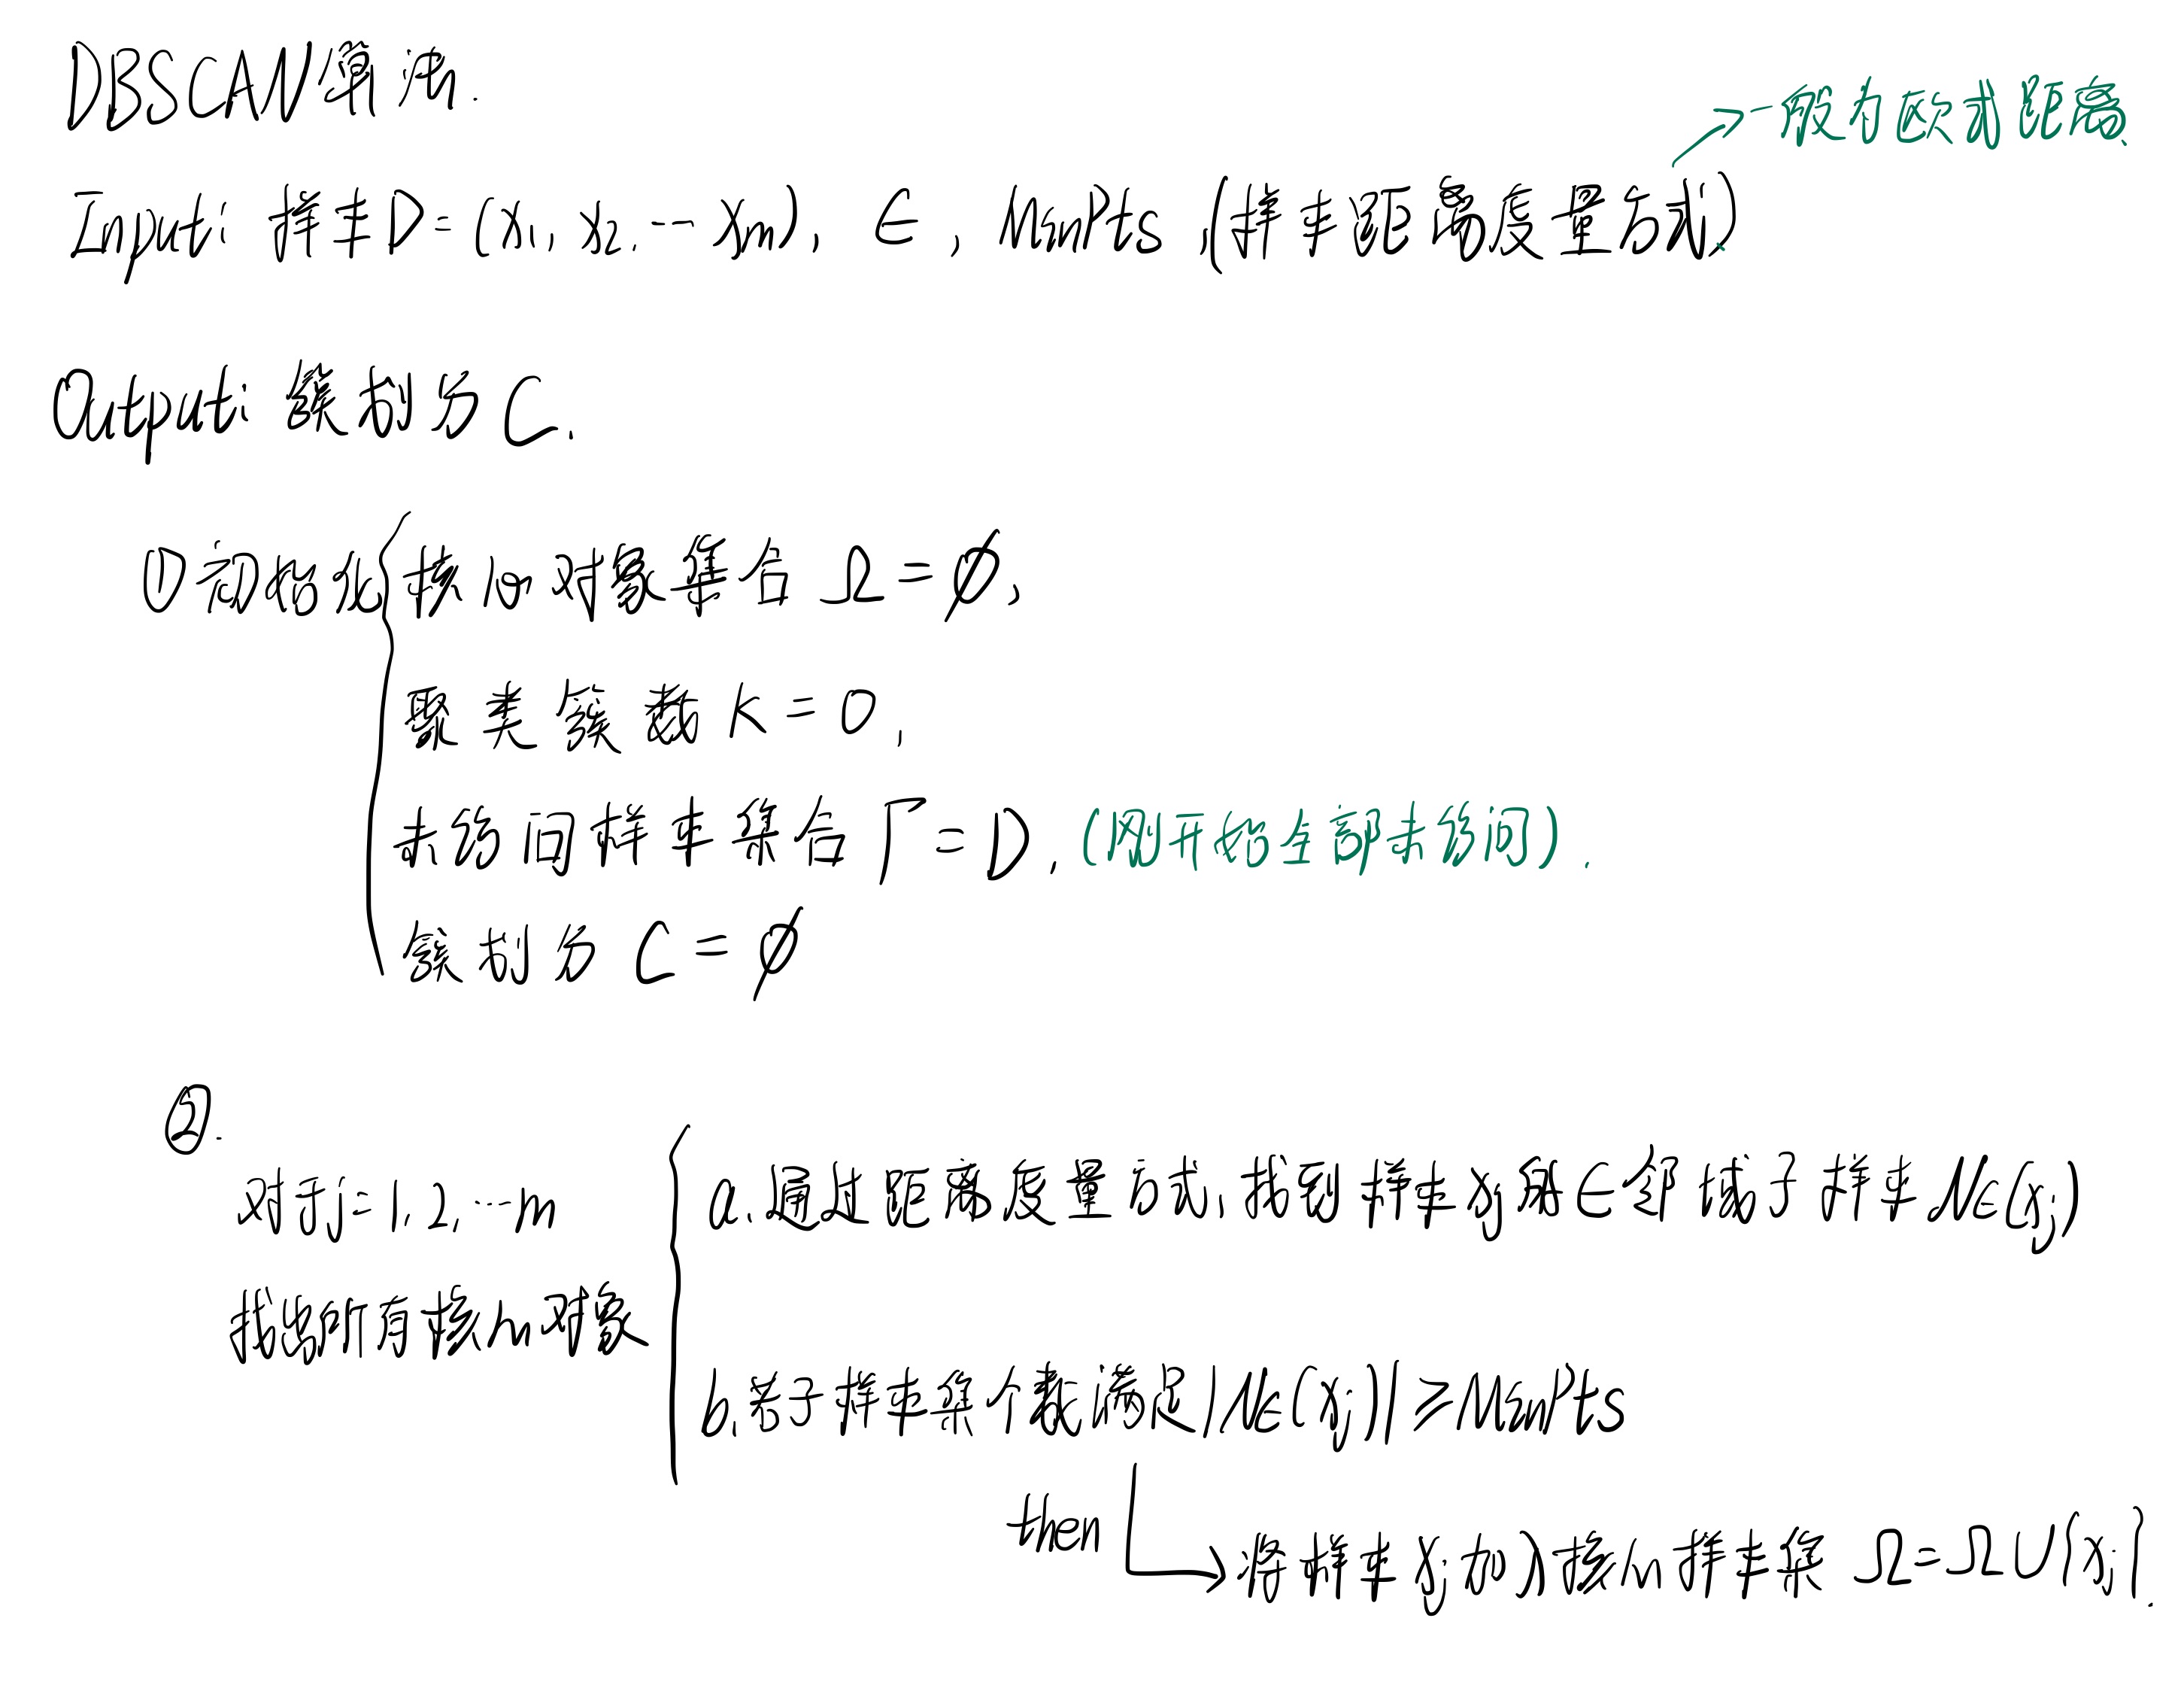 DBSCAN算法.
→一般有欧式距离
Input: 样本D=(x₁, x₂, --- xm), ϵ, MinPts, (样本距离度量方式)
Output: 簇划分C.
① 初始化{核心对象集合Ω=∅,
聚类簇数k=0,
未访问样本集合Γ=D, (刚开始全部未访问).
簇划分C=∅
②.
对于j=1, 2, ---m
找出所有核心对象
a. 通过距离度量方式, 找到样本xj 的ϵ-邻域子样本Nϵ(xj)
b. 若子样本集个数满足|Nϵ(xj)|≥MinPts
then
→将样本xj加入核心样本集 Ω=Ω∪{xj}.